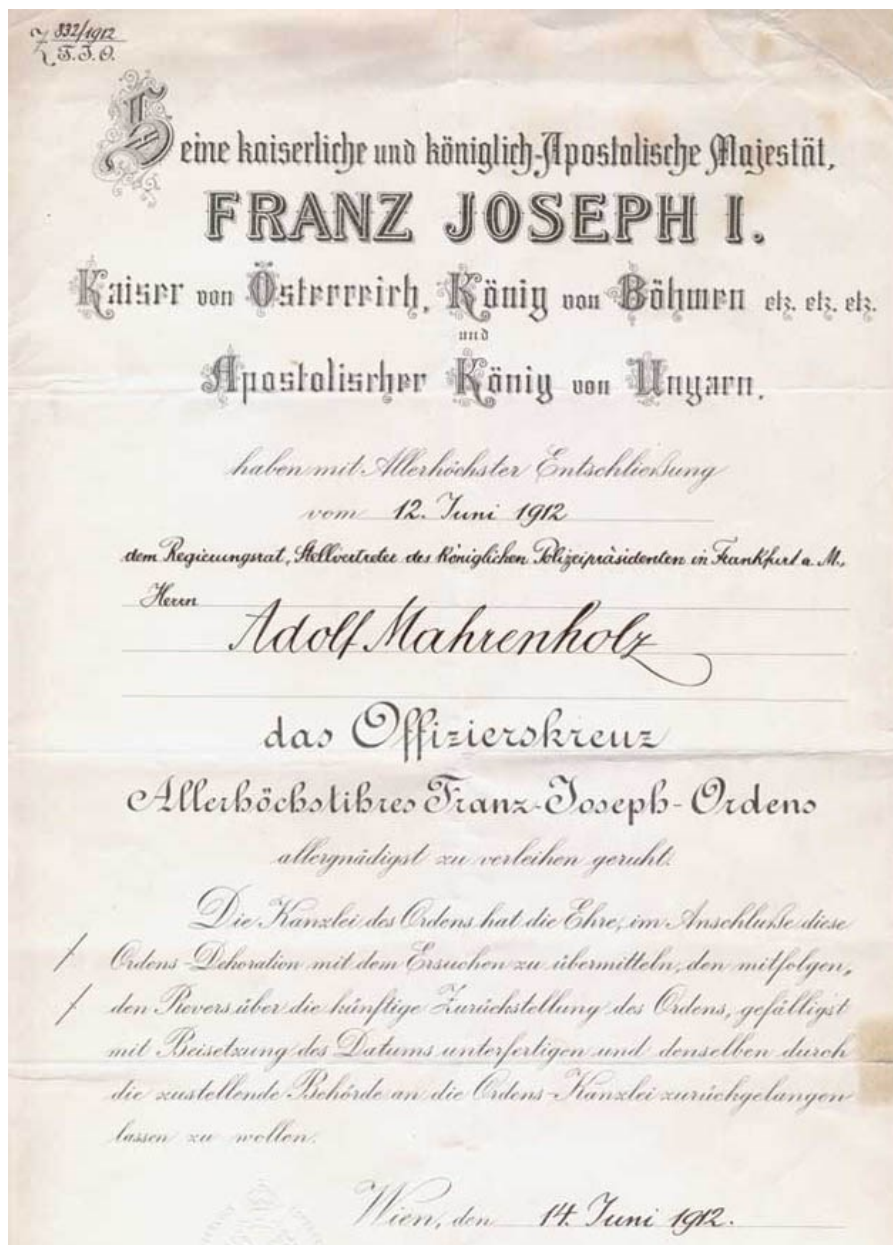 Z 832/1912
F.J.O.
Seine kaiserliche und königlich-Apostolische Majestät,
FRANZ JOSEPH I.
Kaiser von Österreich, König von Böhmen etz. etz. etz.
und
Apostolischer König von Ungarn.
haben mit Allerhöchster Entschließung
vom 12. Juni 1912
dem Regierungsrat, Stellvertreter des Königlichen Polizeipräsidenten in Frankfurt a. M.,
Herrn
Adolf Mahrenholz
das Offizierskreuz
Allerhöchstihres Franz-Joseph-Ordens
allergnädigst zu verleihen geruht.
Die Kanzlei des Ordens hat die Ehre, im Anschluße diese
Ordens-Dekoration mit dem Ersuchen zu übermitteln, den mitfolgen„
den Revers über die künftige Zurückstellung des Ordens, gefälligst
mit Beisetzung des Datums unterfertigen und denselben durch
die zustellende Behörde an die Ordens-Kanzlei zurückgelangen
lassen zu wollen.
Wien, den 14. Juni 1912.